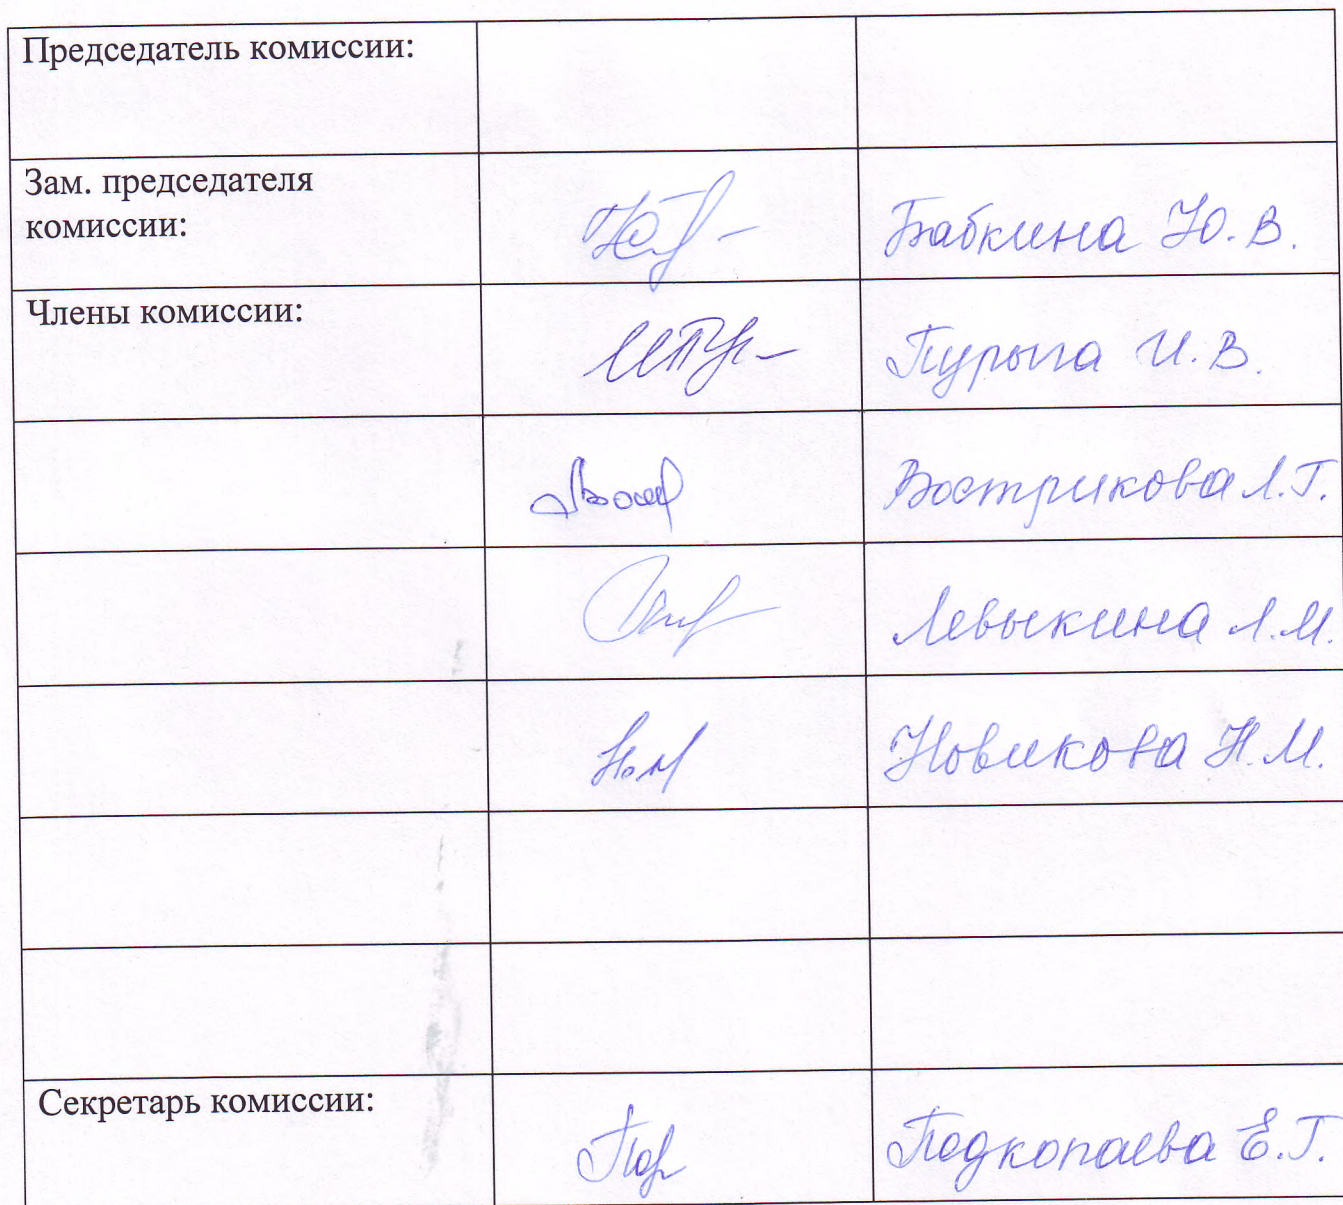 Председатель комиссии:
Зам. председателя
комиссии:
Бабкина Ю. В.
Члены комиссии:
Пурыга И. В.
Вострикова Л. Г.
Левыкина Л. М.
Новикова Н. М.
Секретарь комиссии:
Подкопаева Е. Г.